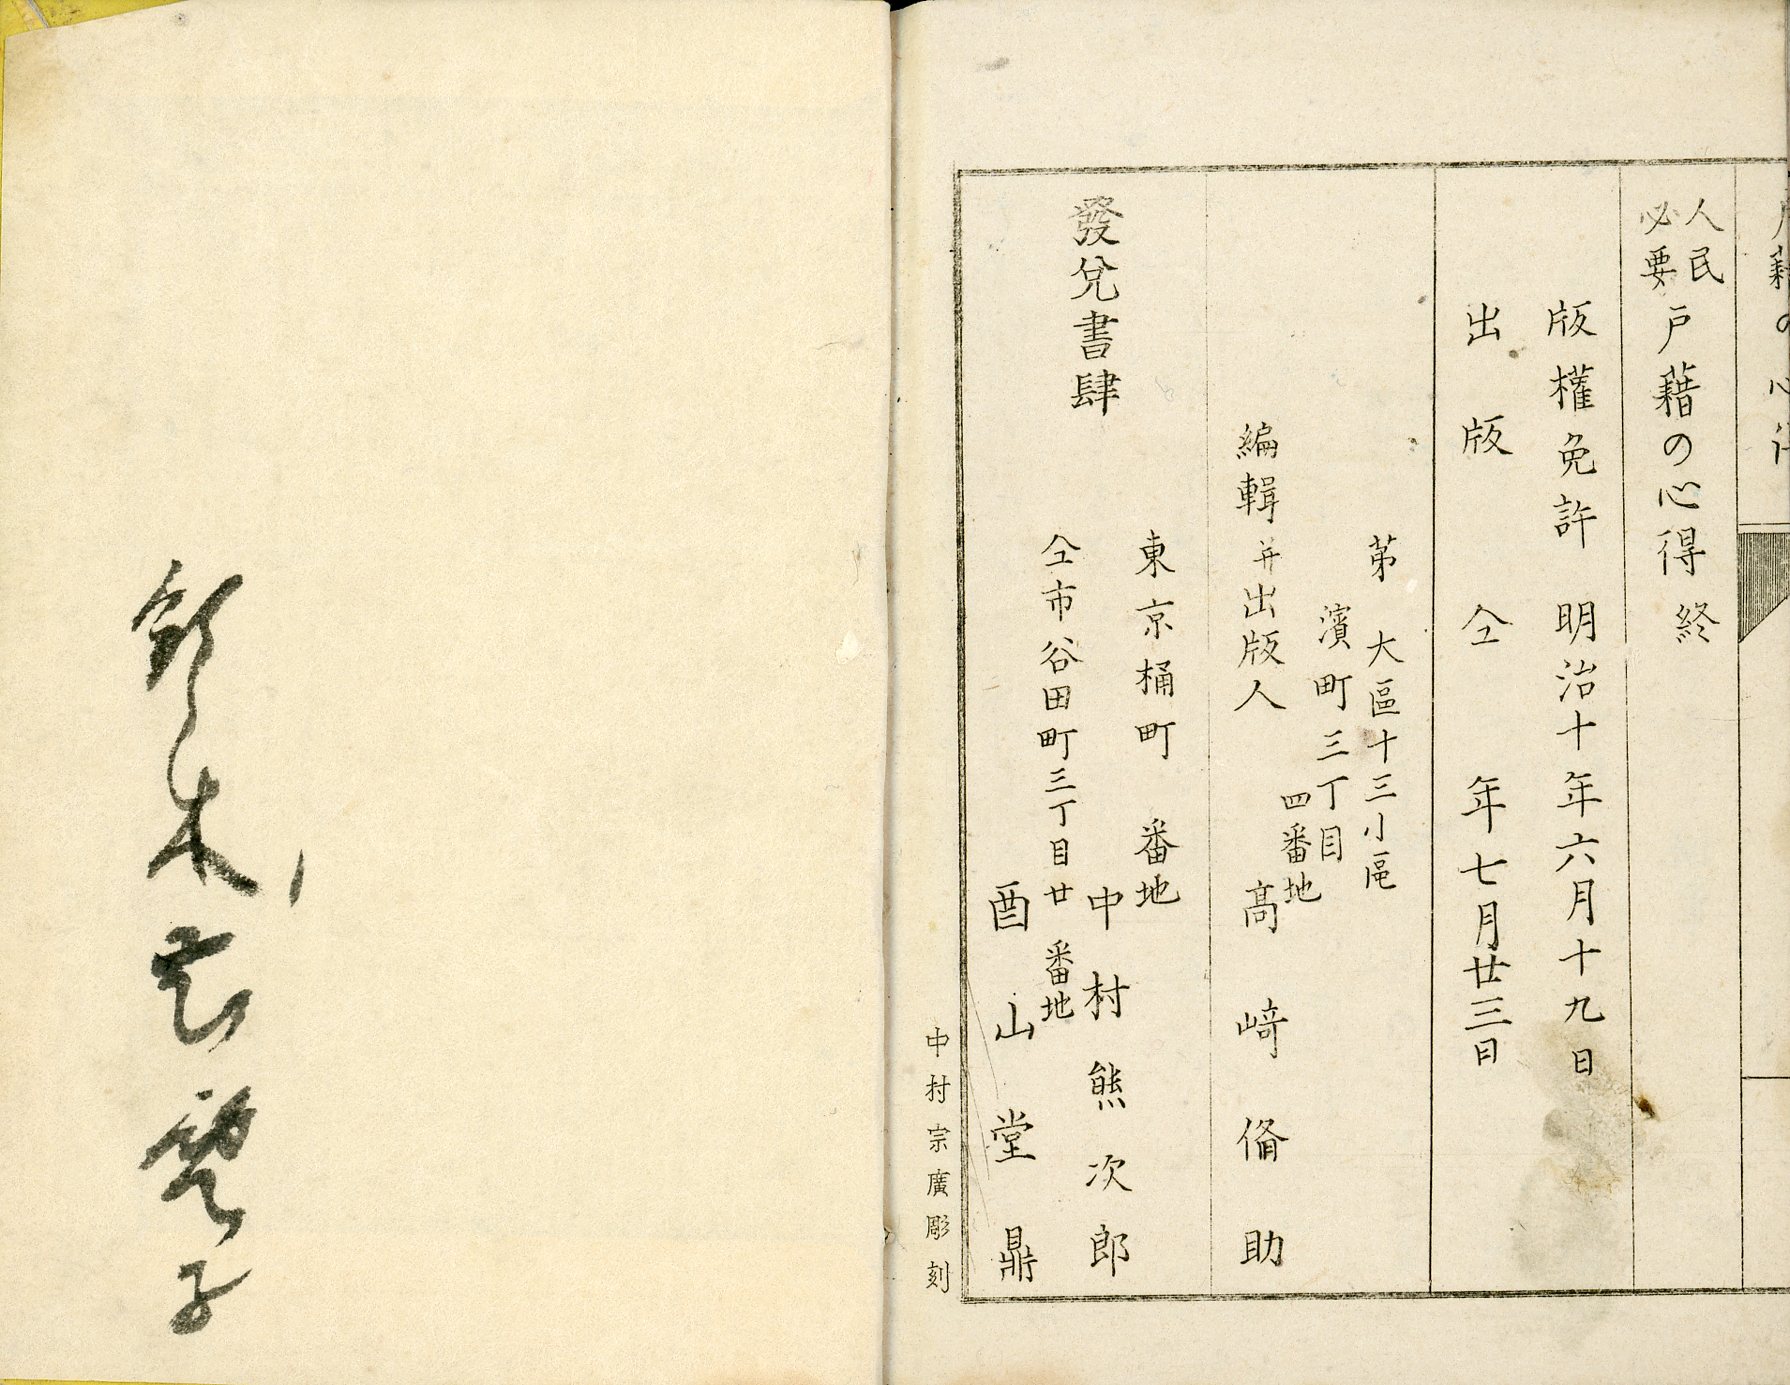 戸籍の心得
人民
必要
戸籍の心得 終
版權免許 明治十年六月十九日
出版 仝年七月廿三日
苐 大區十三小區
濱町三丁目
四番地
編輯并出版人 髙﨑脩助
發兌書肆
東京桶町 番地
中村熊次郎
仝市谷田町三丁目廿 番地
酉山堂鼎
中村宗廣彫刻
鈴木